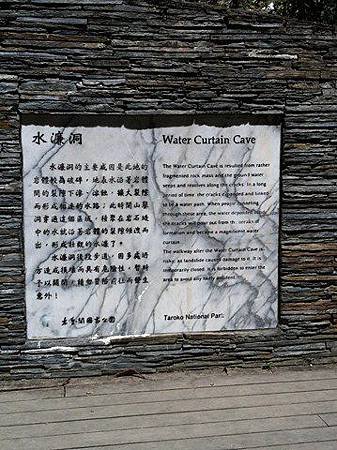 水濂洞
水濂洞的主要成因是此地的
岩體較為破碎，地表水沿著岩體
間的裂隙下滲、溶蝕，擴大裂隙
而形成相連的水路；此時開山鑿
洞穿過這個區域，積聚在岩石境
中的水就沿著岩體的裂隙傾洩而
出，形成壯觀的水濂了。
水濂洞後段步道，因多處坍
方造成損壞而具有危險性，暫時
予以關閉，請勿冒險前往而發生
意外！
太魯閣國家公園
Water Curtain Cave
The Water Curtain Cave is resulted from rather
fragmented rock mass and the ground water
seeps and resolves along the cracks. In a long
period of time the cracks expanded and linked
to be a water path. When people tunneling
through these area, the water deposited along
the cracks will pour out from the break of
formation and become a magnificent water
curtain.
The walkway after the Water Curtain Cave is
risky, as landslide caused damage to it. It is
temporarily closed. It is forbidden to enter the
area to avoid any harm accident.
Taroko National Park